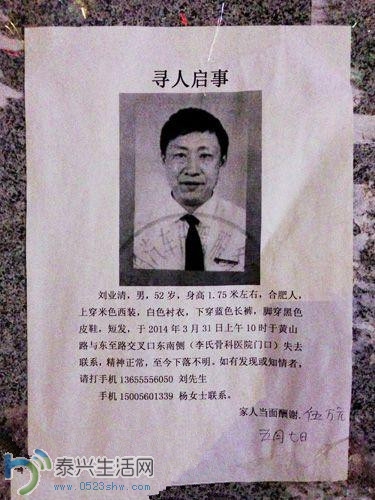 寻人启事
刘业清，男，52岁，身高1.75米左右，合肥人，
上穿米色西装，白色衬衣，下穿蓝色长裤，脚穿黑色
皮鞋，短发，于2014年3月31日上午10时于黄山
路与东至路交叉口东南侧（李氏骨科医院门口）失去
联系，精神正常，至今下落不明。如有发现或知情者，
请打手机13655556050 刘先生
手机15005601339 杨女士联系。
家人当面酬谢. 伍万元
五月七日
泰兴生活网
www.0523shw.com